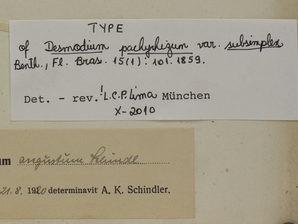 TYPE
of Desmodium pachyrhizum var. subsimplex
Benth., Fl. Bras. 15(1): 101. 1859.
Det. - rev.! L.C.P. Lima München
X-2010
um angustum Schindl
21. 8. 1920 determinavit A. K. Schindler.